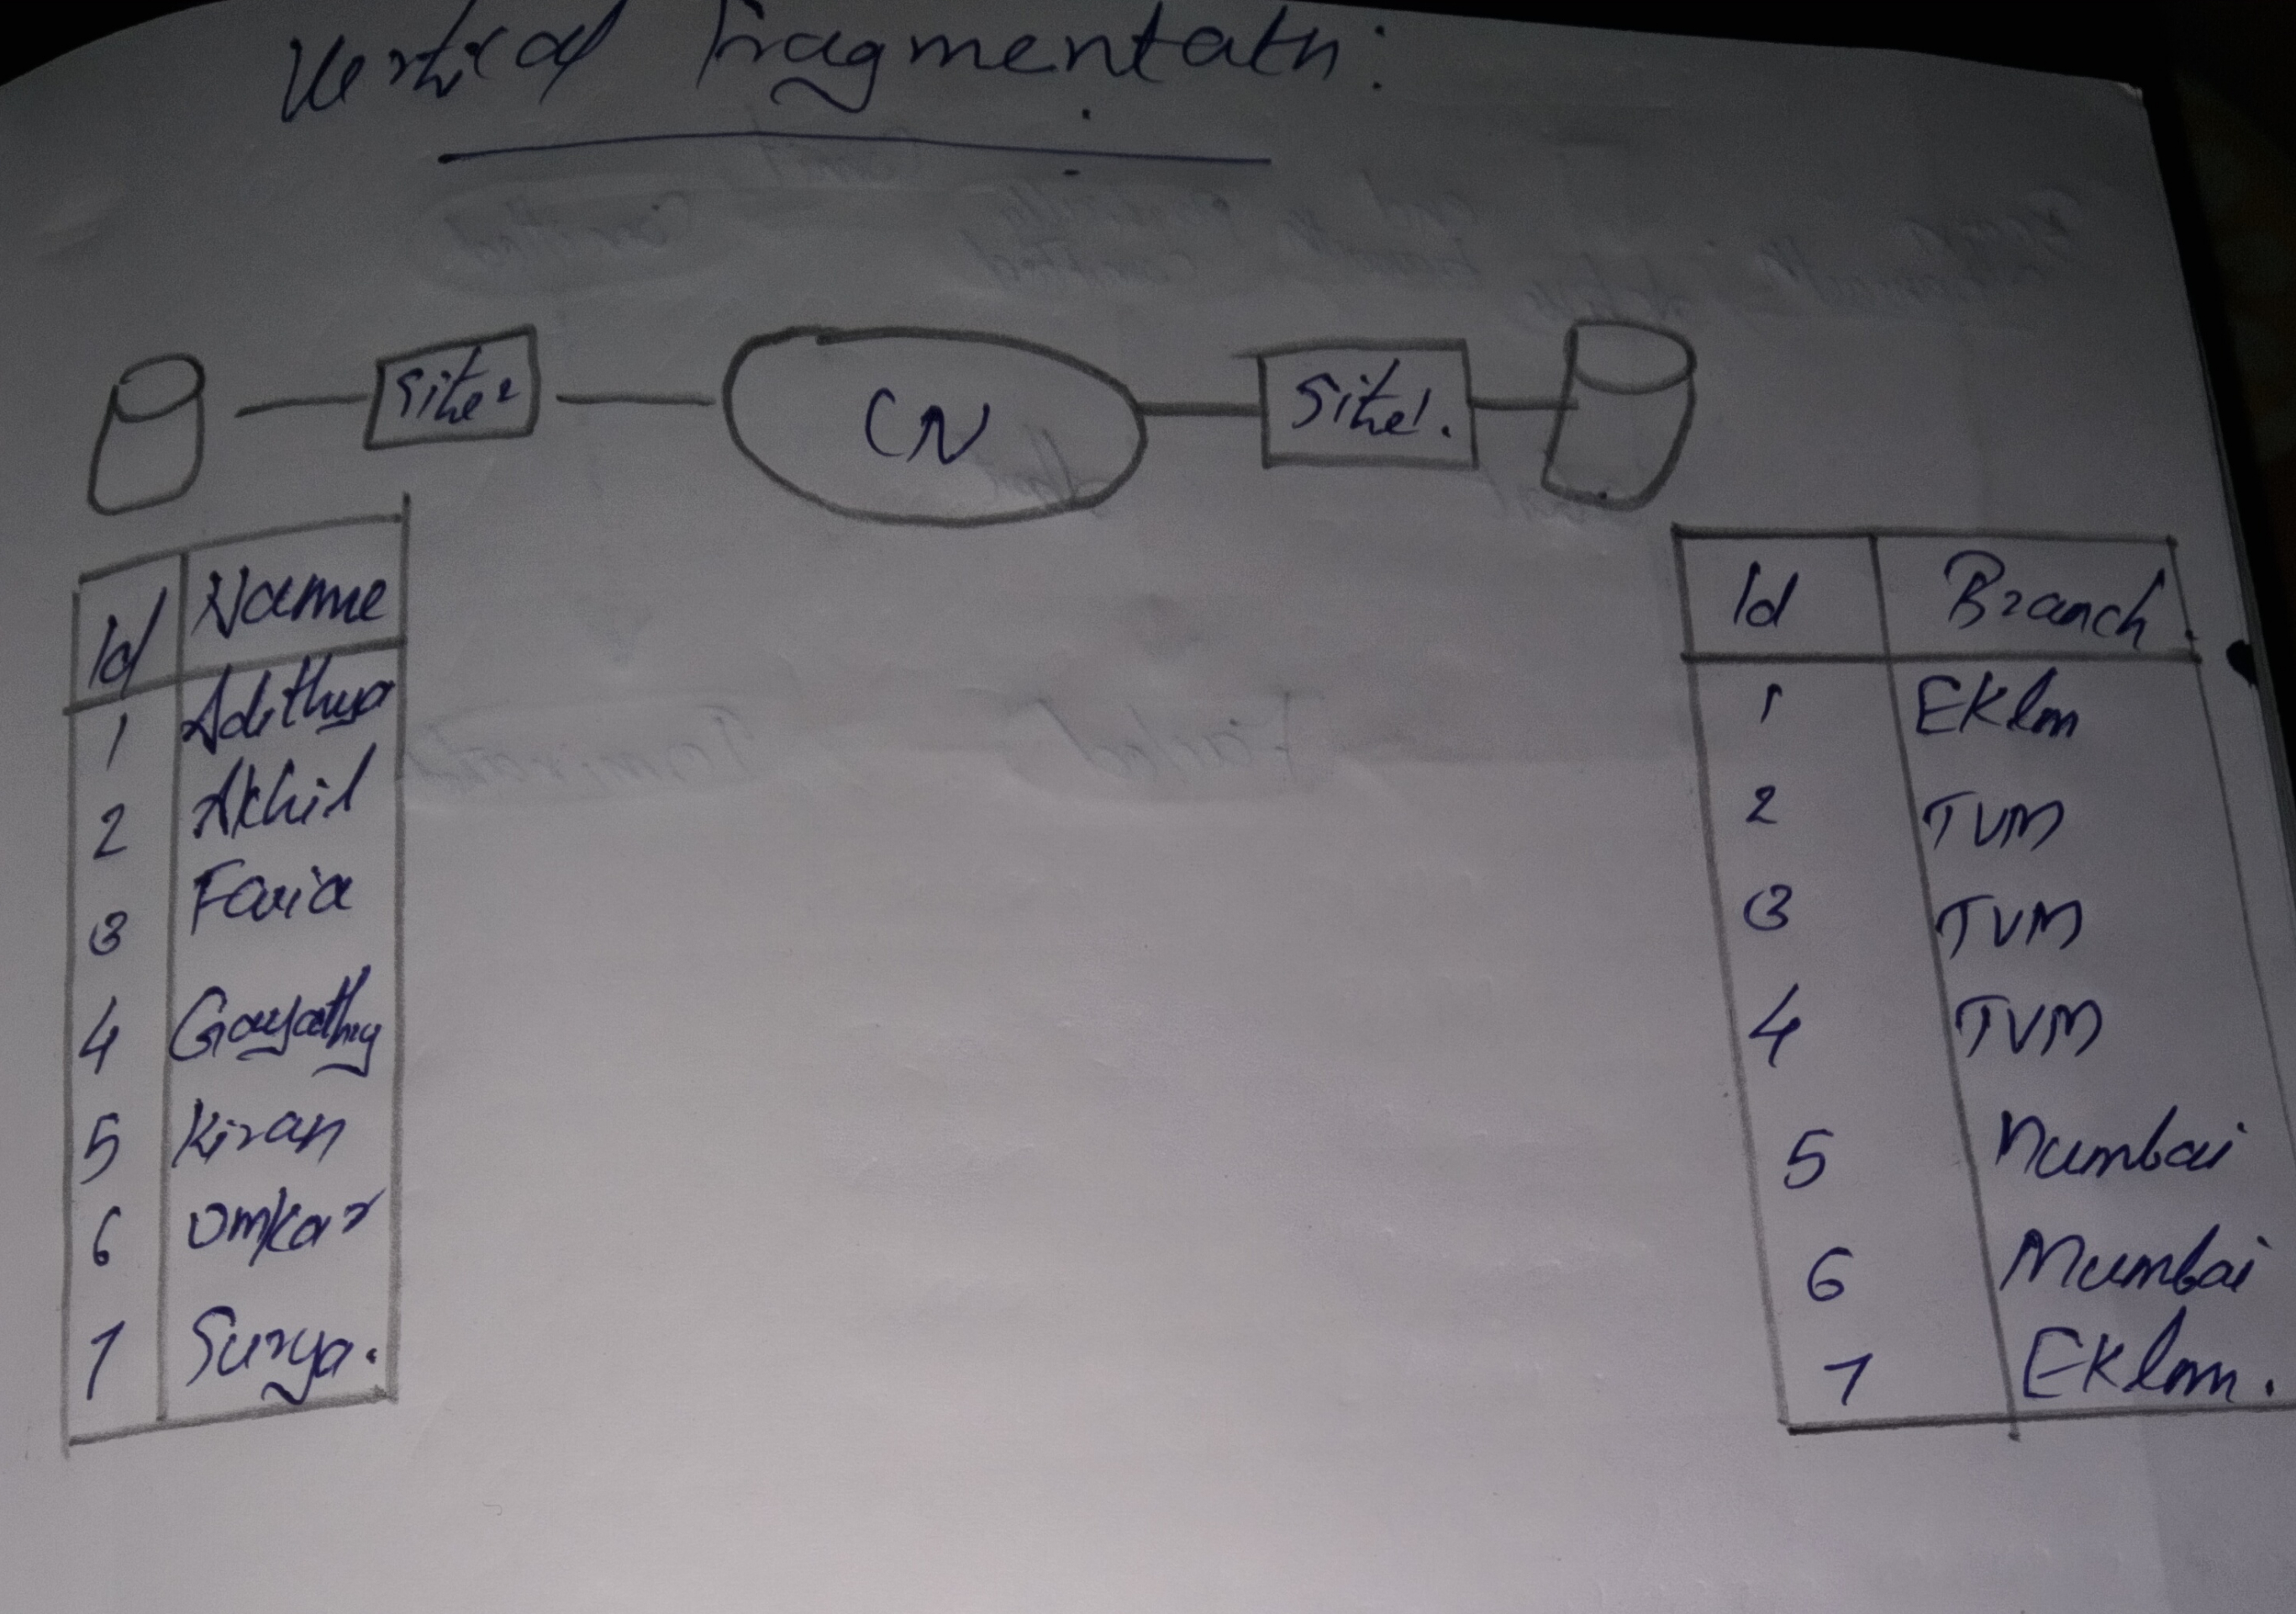 Vertical Fragmentatn:
Site 2
CN
Site 1.
Id Name
1 Adithya
2 Akhil
3
4 Gayathry
5 Kiran
6 Omkar
7 Surya.
Id Branch.
1 EKlm
2 TVM
3 TVM
4 TVM
5 Mumbai
6 Mumbai
7 EKlm.